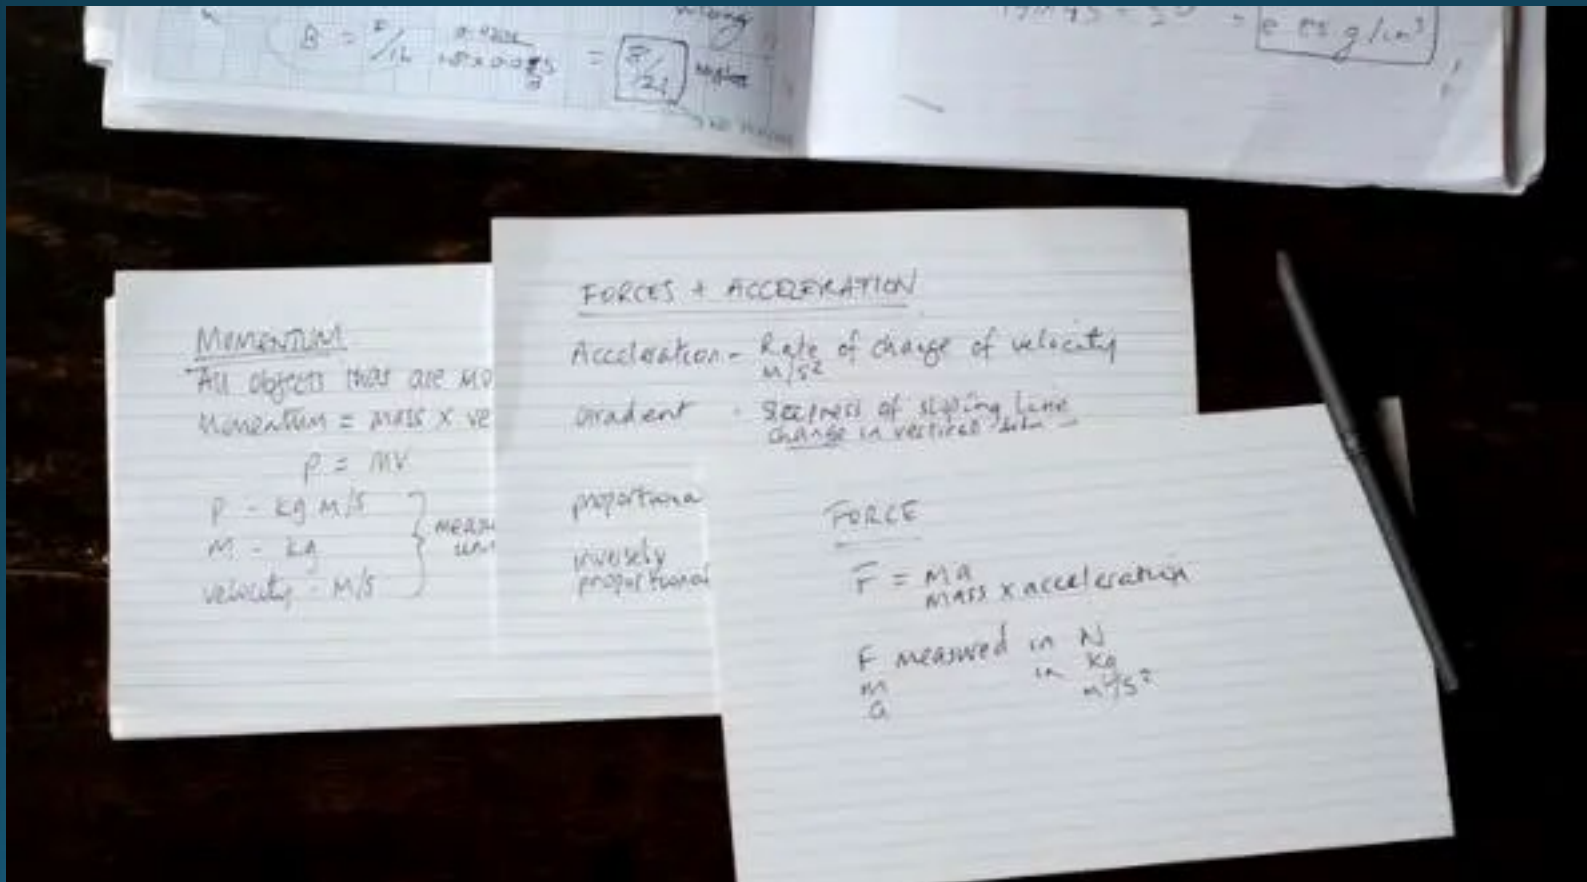 wrong
B =
=
=
g/cm³
MOMENTUM
All objects that are mo
Momentum = mass x ve
P = MV
P - kg m/s
M - kg
velocity - M/S
FORCES + ACCELERATION
Acceleration - Rate of change of velocity
m/s²
Gradient - Steepness of sloping line
change in vertical
proportiona
inversely
proportional
FORCE
F = Ma
Mass x acceleration
F measured in N
m in kg
a m/s²